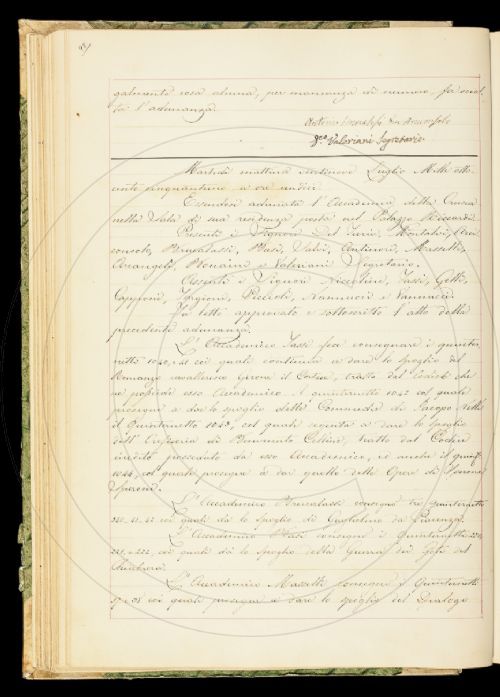 galmente cosa alcuna, per mancanza di numero, fu sciol-
ta l'adunanza.
Valeriani Segretario
Martedì mattina ventinove Luglio Mille otto-
cento cinquantuno a ore undici.
Essendosi adunata l'Accademia della Crusca
nella Sala di sua residenza posta nel Palazzo Riccardi
Presenti i Signori Del Furia, Montalvi, Arci-
consolo, Brucalassi, Busi, Salvi, Antinori, Masselli,
Arcangeli, Bonaini e Valeriani Segretario.
Assenti i Signori Niccolini, Tassi, Gotti,
Capponi, Puccioti, Nannucci e Vannucci.
Fu letto approvato e sottoscritto l'atto della
precedente adunanza.
L'Accademico Tassi fece consegnare i quinter-
netti 1040, 41 coi quali continua a dare lo spoglio del
Romanzo cavalleresco Girone il Cortese, tratto dal Codice che
ne possiede esso Accademico. I quinternetti 1042 col quale
prosegue a dar lo spoglio delle Commedie di Jacopo Nelli
il Quinternetto 1043, col quale seguita a dare lo spoglio
dell' di Benvenuto Cellini, tratto dal Codice
inedito posseduto da esso Accademico, ed anche il quint.
1044, col quale prosegue a dar quello delle Opere di
L'Accademico Brucalassi consegnò tre quinternetti
240, 41, 42 coi quali dà lo spoglio di Guglielmo da Piacenza.
L'Accademico Busi consegnò i Quinternetti 220,
221, e 222, coi quali dà lo spoglio della Guerra dei Goti del
L'Accademico Masselli consegnò i Quinternetti
coi quali prosegue a dare lo spoglio del Dialogo